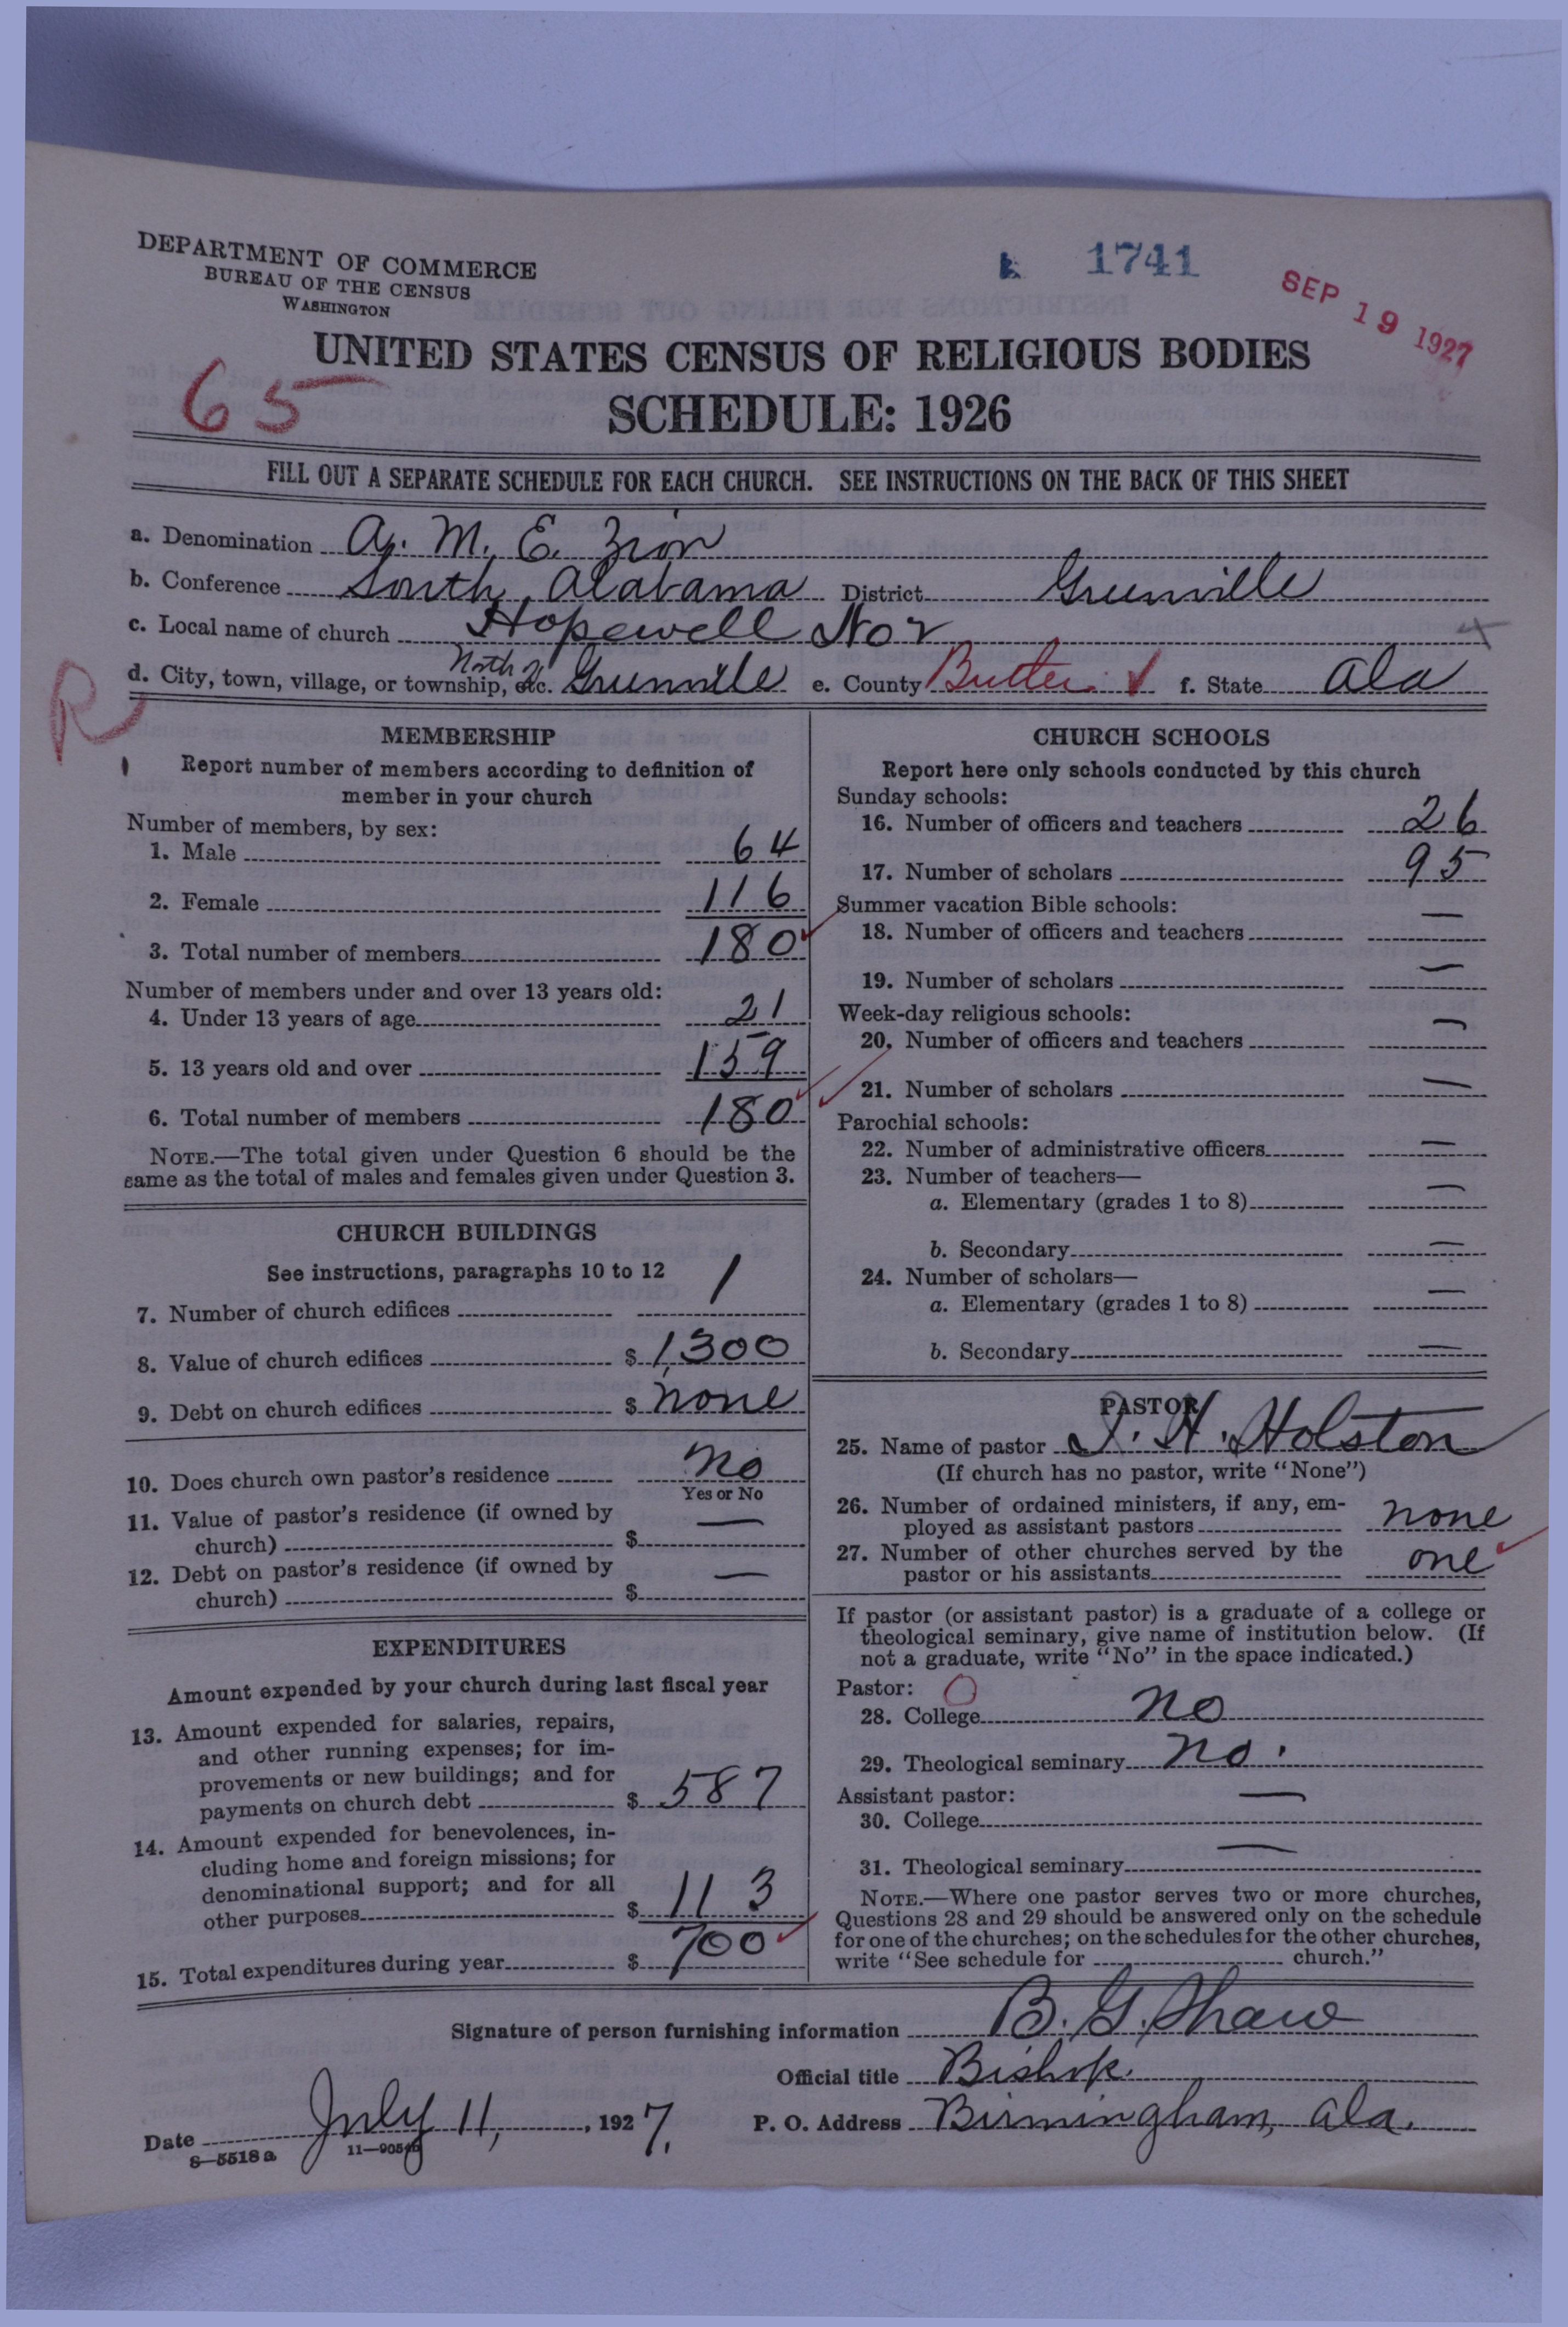 DEPARTMENT OF COMMERCE
BUREAU OF THE CENSUS
WASHINGTON
1741
SEP 19 1927
UNITED STATES CENSUS OF RELIGIOUS BODIES
65
SCHEDULE: 1926
FILL OUT A SEPARATE SCHEDULE FOR EACH CHURCH. SEE INSTRUCTIONS ON THE BACK OF THIS SHEET
a. Denomination A. M. E. Zion
b. Conference South Alabama District Greenville
c. Local name of church Hopewell No 2
d. City, town, village, or township, etc. North of Greenville e. County Butler f. State Ala
R
MEMBERSHIP
Report number of members according to definition of
member in your church
Number of members, by sex:
1. Male 64
2. Female 116
3. Total number of members 180
Number of members under and over 13 years old:
4. Under 13 years of age 21
5. 13 years old and over 159
6. Total number of members 180
NOTE.—The total given under Question 6 should be the
same as the total of males and females given under Question 3.
CHURCH BUILDINGS
See instructions, paragraphs 10 to 12
7. Number of church edifices 1
8. Value of church edifices $ 1,300
9. Debt on church edifices $ none
10. Does church own pastor's residence No
Yes or No
11. Value of pastor's residence (if owned by
church) $ —
12. Debt on pastor's residence (if owned by
church) $ —
EXPENDITURES
Amount expended by your church during last fiscal year
13. Amount expended for salaries, repairs,
and other running expenses; for im-
provements or new buildings; and for
payments on church debt $ 587
14. Amount expended for benevolences, in-
cluding home and foreign missions; for
denominational support; and for all
other purposes $ 113
15. Total expenditures during year $ 700
CHURCH SCHOOLS
Report here only schools conducted by this church
Sunday schools:
16. Number of officers and teachers 26
17. Number of scholars 95
Summer vacation Bible schools:
18. Number of officers and teachers —
19. Number of scholars —
Week-day religious schools:
20. Number of officers and teachers —
21. Number of scholars —
Parochial schools:
22. Number of administrative officers —
23. Number of teachers—
a. Elementary (grades 1 to 8) —
b. Secondary —
24. Number of scholars—
a. Elementary (grades 1 to 8) —
b. Secondary —
PASTOR
25. Name of pastor J. H. Holston
(If church has no pastor, write "None")
26. Number of ordained ministers, if any, em-
ployed as assistant pastors none
27. Number of other churches served by the
pastor or his assistants one
If pastor (or assistant pastor) is a graduate of a college or
theological seminary, give name of institution below. (If
not a graduate, write "No" in the space indicated.)
Pastor: O
28. College No
29. Theological seminary No.
Assistant pastor:
30. College —
31. Theological seminary —
NOTE.—Where one pastor serves two or more churches,
Questions 28 and 29 should be answered only on the schedule
for one of the churches; on the schedules for the other churches,
write "See schedule for church."
Signature of person furnishing information B. G. Shaw
Official title Bishop.
Date July 11, , 1927. P. O. Address Birmingham, Ala.